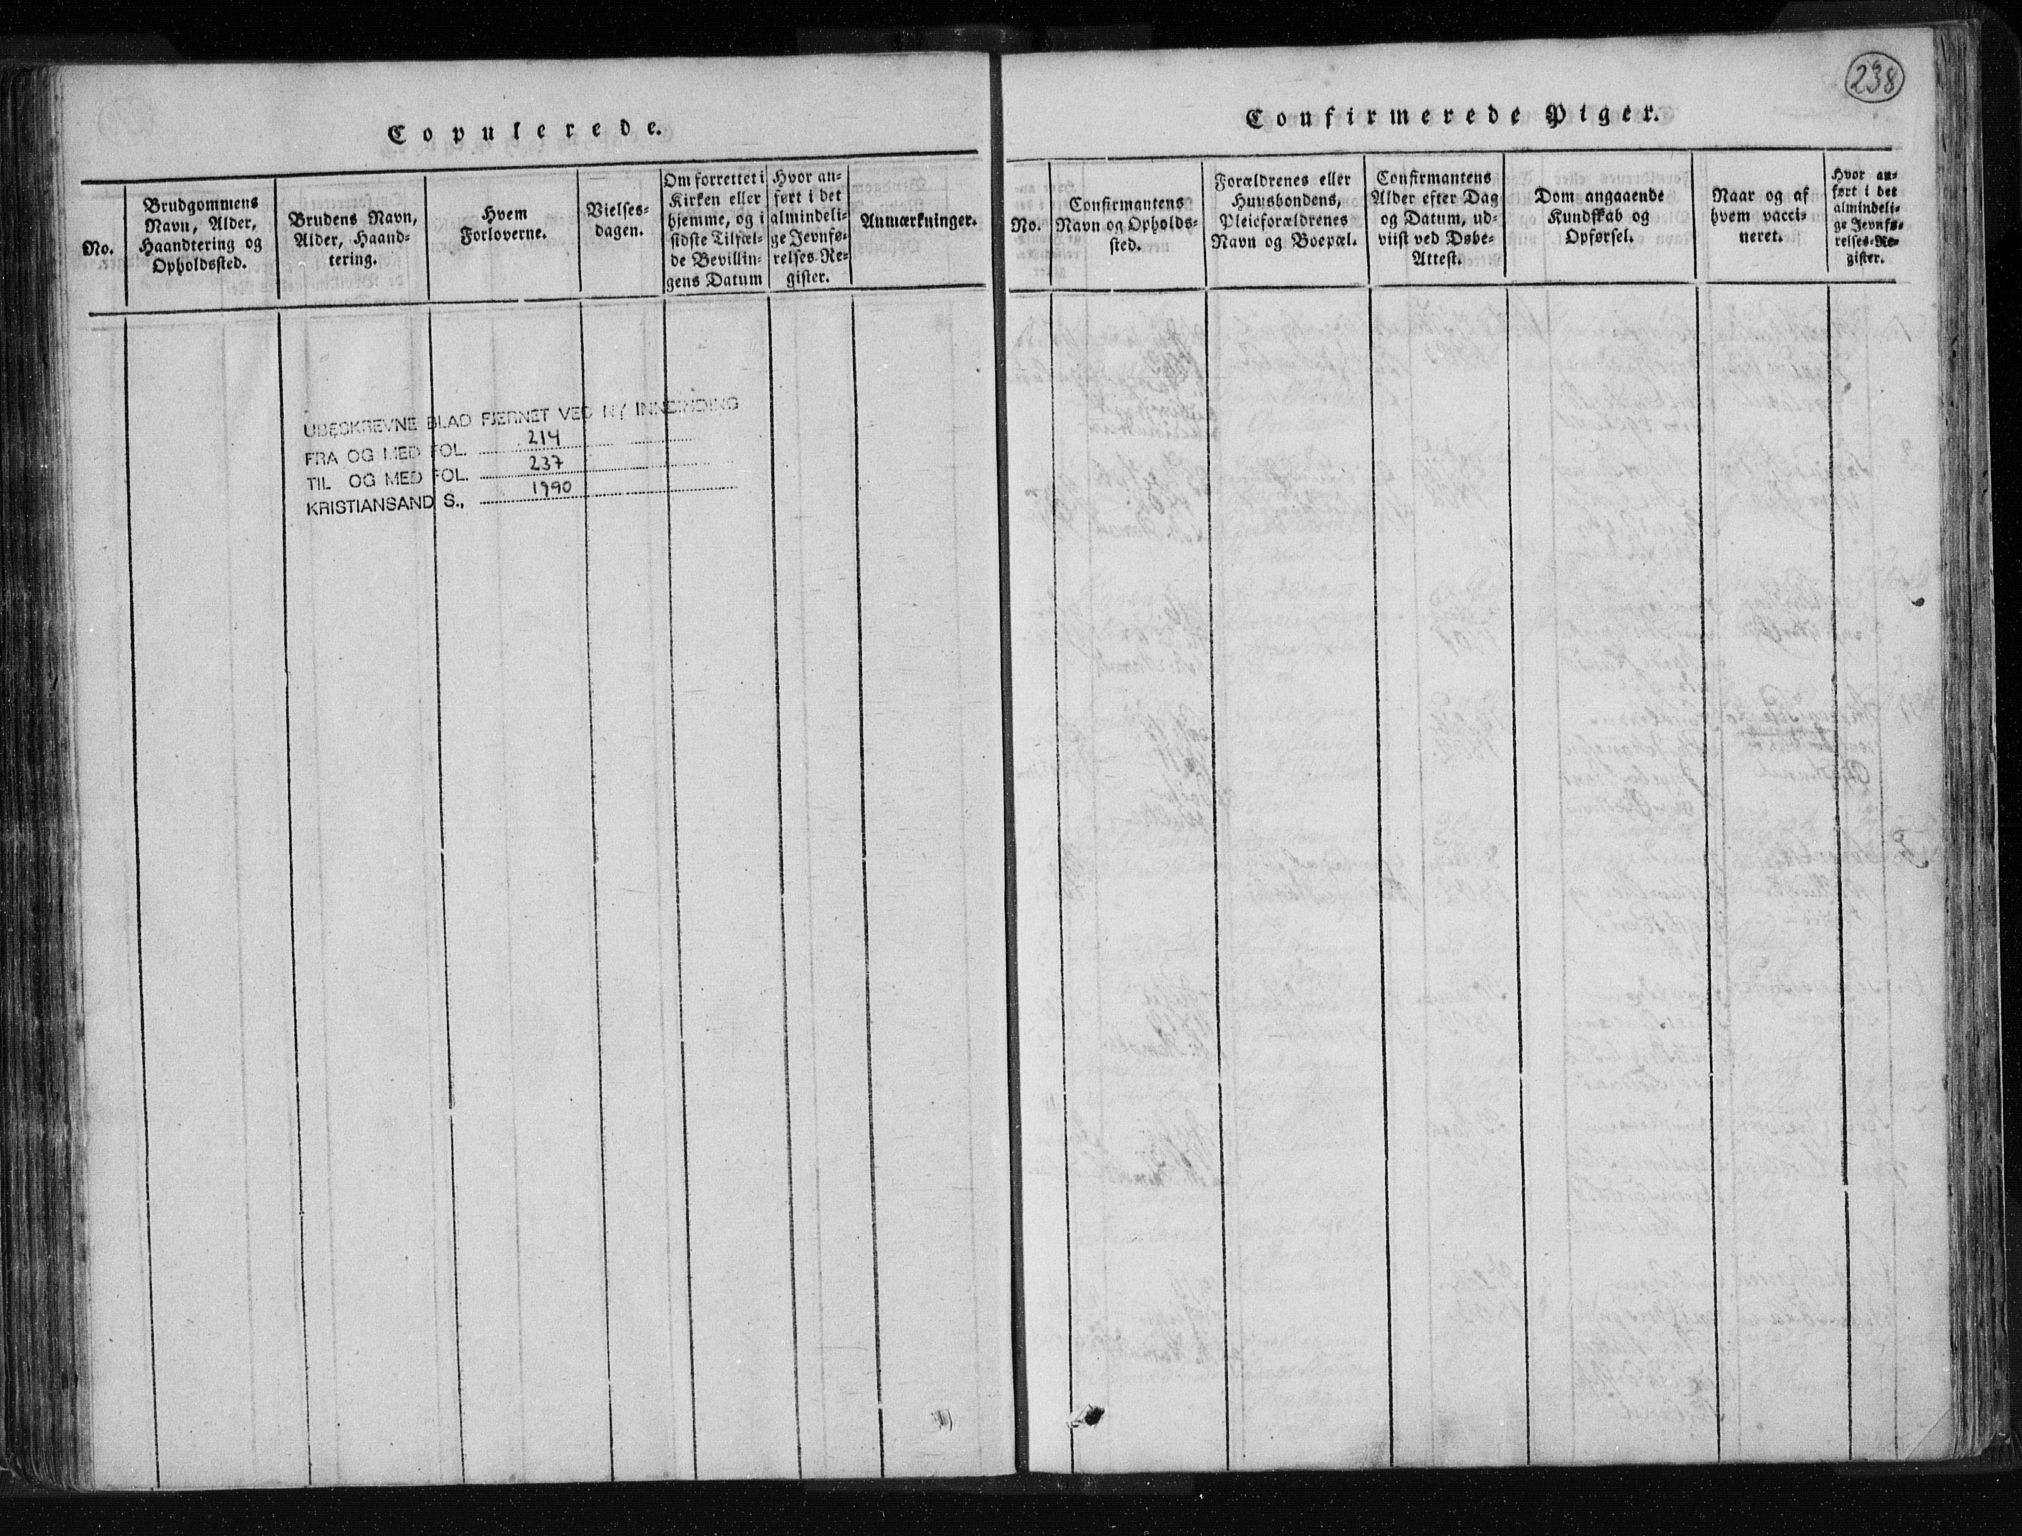 Copulerede.
No.
Brudgommens
Navn, Alder,
Haandtering og
Opholdssted.
Brudens Navn,
Alder, Haand-
tering.
Hvem
Forloverne.
Vielses-
dagen.
Om forrettet i
Kirken eller
hjemme, og i
sidste Tilfæl-
de Bevillin-
gens Datum
Hvor an-
ført i det
almindeli-
ge Jevnfø-
relses-Re-
gister.
Anmærkninger.
UBESKREVNE BLAD FJERNET VED NY INNBINDING
FRA OG MED FOL. 214
TIL OG MED FOL. 237
KRISTIANSAND S., 1990
238
Confirmerede Piger.
No.
Confirmantens
Navn og Opholds-
sted.
Forældrenes eller
Huusbondens,
Pleieforældrenes
Navn og Boepæl.
Confirmantens
Alder efter Dag
og Datum, ud-
viist ved Døbe-
Attest.
Dom angaaende
Kundskab og
Opførsel.
Naar og af
hvem vacci-
neret.
Hvor an-
ført i det
almindeli-
ge Jevnfø-
relses-Re-
gister.